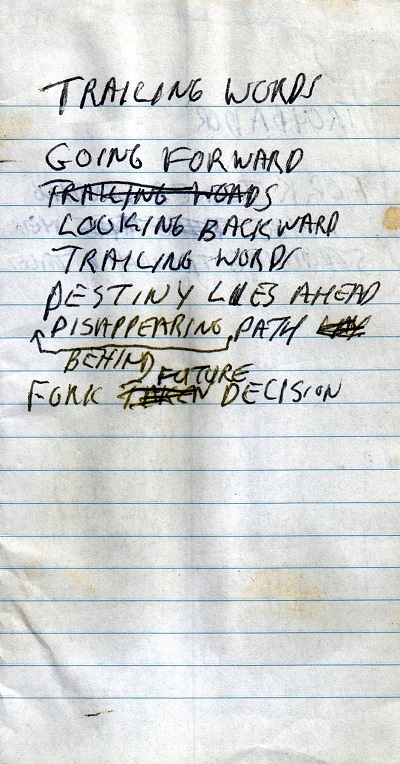 TRAILING WORDS
GOING FORWARD
TRAILING WORDS
LOOKING BACKWARD
TRAILING WORDS
DESTINY LIES AHEAD
DISAPPEARING PATH
BEHIND
FUTURE
FORK TAKEN DECISION